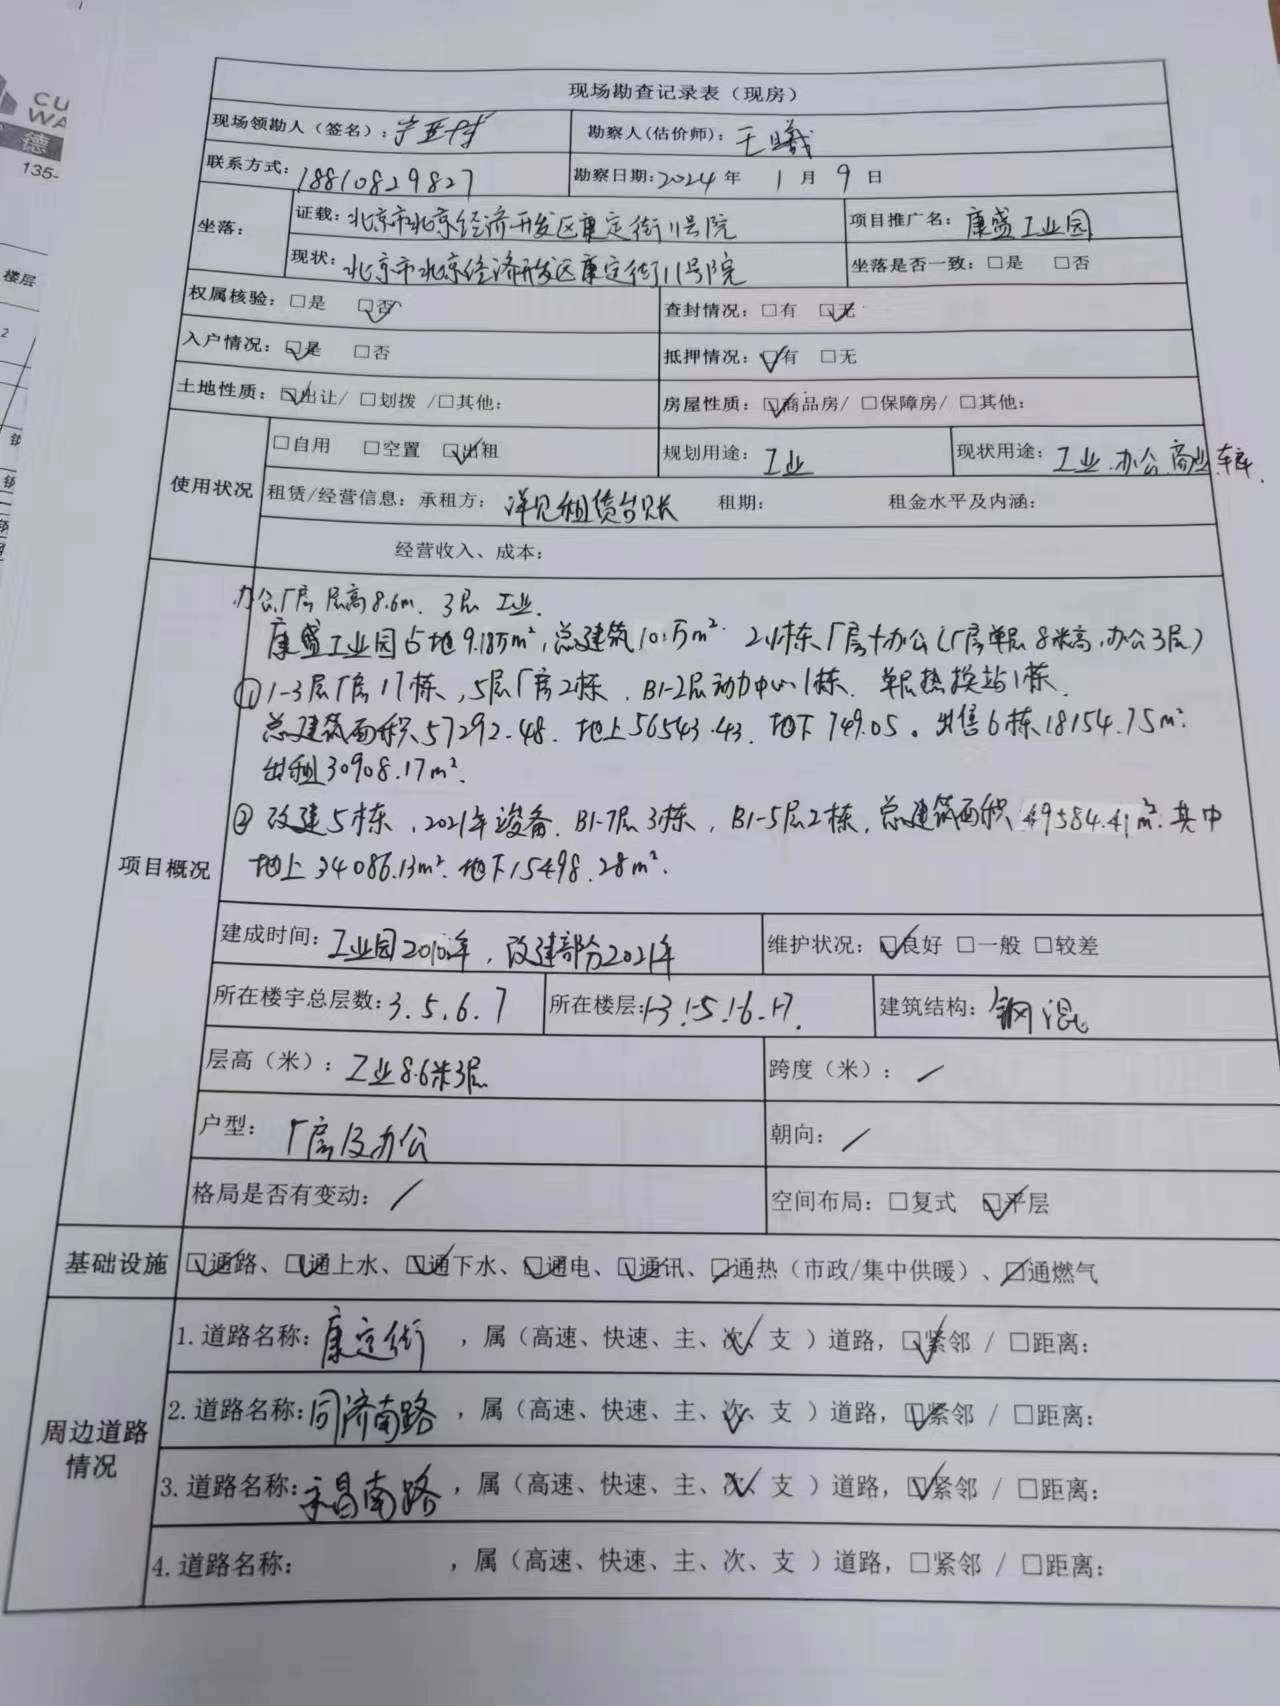 CU
WA
德
135-
楼层
2
现场勘查记录表（现房）
现场领勘人（签名）：
勘察人(估价师)：王曦
联系方式：18810829827
勘察日期:2024 年 1 月 9 日
坐落：
证载：北京市北京经济开发区康定街11号院
项目推广名：康盛工业园
现状：北京市北京经济开发区康定街11号院
坐落是否一致：□是 □否
权属核验：□是 ☑否
查封情况：□有 ☑无
入户情况：☑是 □否
抵押情况：☑有 □无
土地性质：☑出让/ □划拨 /□其他:
房屋性质：☑商品房/ □保障房/ □其他:
使用状况
□自用 □空置 ☑出租
规划用途：工业
现状用途：工业.办公.商业.车库.
租赁/经营信息：承租方：详见租赁台账 租期： 租金水平及内涵：
经营收入、成本：
项目概况
办公厂房 层高8.6m. 3层 工业.
康盛工业园占地9.18万m²,总建筑10.1万m². 21栋厂房+办公(厂房单层8米高,办公3层)
① 1-3层厂房17栋,5层厂房2栋.B1-2层动力中心1栋. 单层热换站1栋.
总建筑面积57292.48. 地上56543.43. 地下749.05。出售6栋18154.75m².
出租30908.17m².
② 改建5栋,2021年竣备.B1-7层3栋,B1-5层2栋,总建筑面积49584.41m².其中
地上34086.13m².地下15498.28m².
建成时间：工业园2010年,改建部分2021年
维护状况：☑良好 □一般 □较差
所在楼宇总层数：3.5.6.7
所在楼层:1-3.1-5.1-6.1-7.
建筑结构：钢混
层高（米）：工业8.6米3层
跨度（米）：/
户型：厂房及办公
朝向：/
格局是否有变动：/
空间布局：□复式 ☑平层
基础设施
☑通路、☑通上水、☑通下水、☑通电、☑通讯、☑通热（市政/集中供暖）、☑通燃气
周边道路情况
1.道路名称：康定街 ，属（高速、快速、主、次✓、支 ）道路，☑紧邻 / □距离：
2.道路名称：同济南路 ，属（高速、快速、主、次✓、支 ）道路，☑紧邻 / □距离：
3.道路名称：永昌南路 ，属（高速、快速、主、次✓、支 ）道路，☑紧邻 / □距离：
4.道路名称： ，属（高速、快速、主、次、支 ）道路，□紧邻 / □距离：